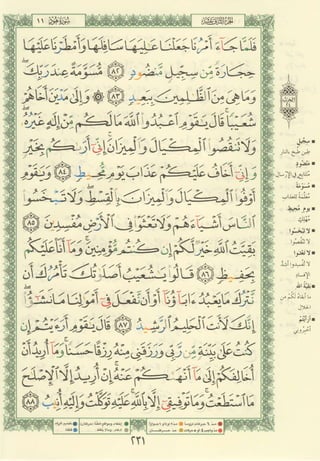 سُورَةُ هُودٍ ١١
الجُزْءُ الثَّانِي عَشَرَ
فَلَمَّا جَآءَ أَمْرُنَا جَعَلْنَا عَٰلِيَهَا سَافِلَهَا وَأَمْطَرْنَا عَلَيْهَا
حِجَارَةً مِّن سِجِّيلٍ مَّنضُودٍ ٨٢ مُّسَوَّمَةً عِندَ رَبِّكَۖ
وَمَا هِىَ مِنَ ٱلظَّٰلِمِينَ بِبَعِيدٍ ٨٣ ۞ وَإِلَىٰ مَدْيَنَ أَخَاهُمْ
شُعَيْبًاۚ قَالَ يَٰقَوْمِ ٱعْبُدُوا۟ ٱللَّهَ مَا لَكُم مِّنْ إِلَٰهٍ غَيْرُهُۥۖ
وَلَا تَنقُصُوا۟ ٱلْمِكْيَالَ وَٱلْمِيزَانَۚ إِنِّىٓ أَرَىٰكُم بِخَيْرٍ
وَإِنِّىٓ أَخَافُ عَلَيْكُمْ عَذَابَ يَوْمٍ مُّحِيطٍ ٨٤ وَيَٰقَوْمِ
أَوْفُوا۟ ٱلْمِكْيَالَ وَٱلْمِيزَانَ بِٱلْقِسْطِۖ وَلَا تَبْخَسُوا۟
ٱلنَّاسَ أَشْيَآءَهُمْ وَلَا تَعْثَوْا۟ فِى ٱلْأَرْضِ مُفْسِدِينَ ٨٥
بَقِيَّتُ ٱللَّهِ خَيْرٌ لَّكُمْ إِن كُنتُم مُّؤْمِنِينَۚ وَمَآ أَنَا۠ عَلَيْكُم
بِحَفِيظٍ ٨٦ قَالُوا۟ يَٰشُعَيْبُ أَصَلَوٰتُكَ تَأْمُرُكَ أَن
نَّتْرُكَ مَا يَعْبُدُ ءَابَآؤُنَآ أَوْ أَن نَّفْعَلَ فِىٓ أَمْوَٰلِنَا مَا نَشَٰٓؤُا۟ۖ
إِنَّكَ لَأَنتَ ٱلْحَلِيمُ ٱلرَّشِيدُ ٨٧ قَالَ يَٰقَوْمِ أَرَءَيْتُمْ إِن
كُنتُ عَلَىٰ بَيِّنَةٍ مِّن رَّبِّى وَرَزَقَنِى مِنْهُ رِزْقًا حَسَنًاۚ وَمَآ أُرِيدُ أَنْ
أُخَالِفَكُمْ إِلَىٰ مَآ أَنْهَىٰكُمْ عَنْهُۚ إِنْ أُرِيدُ إِلَّا ٱلْإِصْلَٰحَ
مَا ٱسْتَطَعْتُۚ وَمَا تَوْفِيقِىٓ إِلَّا بِٱللَّهِۚ عَلَيْهِ تَوَكَّلْتُ وَإِلَيْهِ أُنِيبُ ٨٨
سِجِّيلٍ
مَنضُودٍ
مُسَوَّمَةً
يَوْمٍ مُحِيطٍ
لَا تَبْخَسُوا
لَا تَعْثَوْا
بَقِيَّتُ اللَّهِ
أَرَأَيْتُمْ
٢٣١